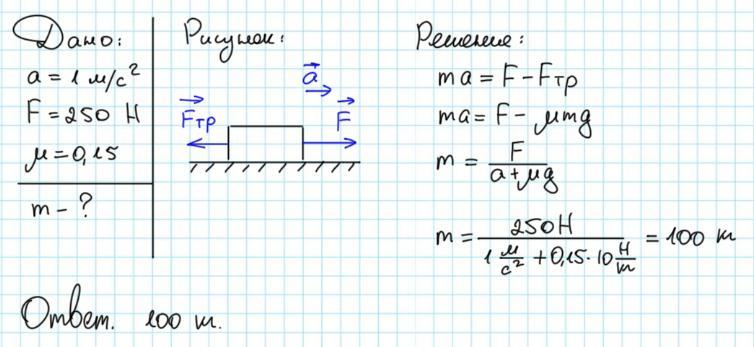 Дано:
a = 1 м/с²
F = 250 Н
μ = 0,15
m - ?
Рисунок:
a
Fтр
F
Решение:
ma = F - Fтр
ma = F - μmg
m = F / (a + μg)
m = 250Н / (1 м/с² + 0,15 · 10 Н/m) = 100 m
Ответ. 100 m.